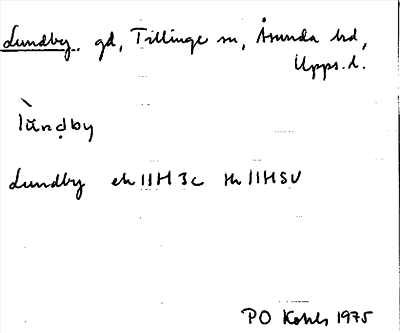 Lundby. gd, Tillinge sn, Åsunda hd,
Upps. l.
lùnḍby
Lundby ek 11H 3c tk 11HSV
PO Kohls 1975